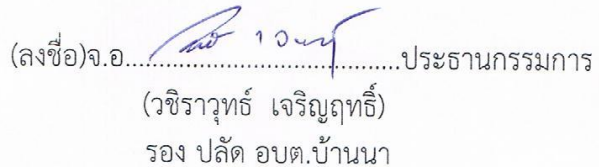 (ลงชื่อ)จ.อ.......................................ประธานกรรมการ
(วชิราวุทธ์ เจริญฤทธิ์)
รอง ปลัด อบต.บ้านนา